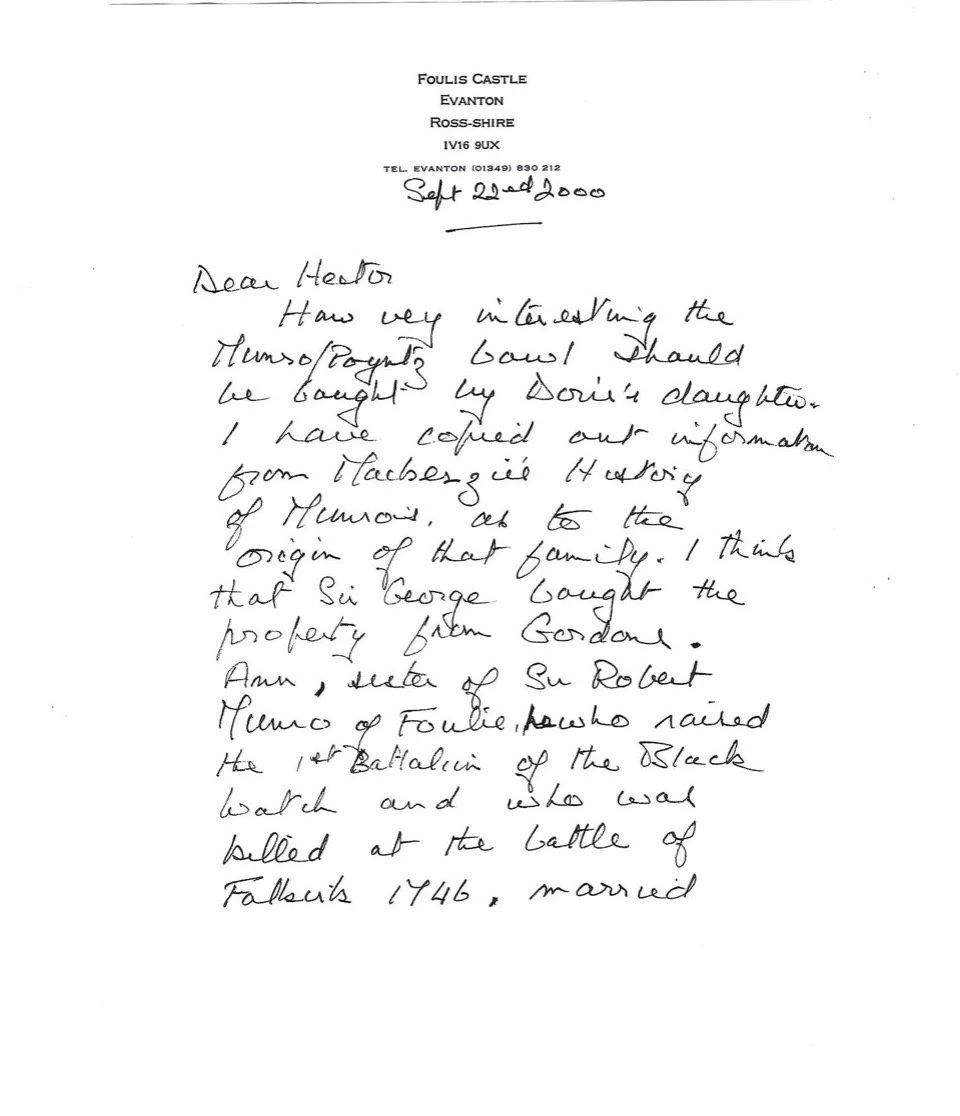 FOULIS CASTLE
EVANTON
ROSS-SHIRE
IV16 9UX
TEL. EVANTON (01349) 830 212
Sept 22ed 2000
Dear Hector
How very interesting the
Munro/Poyntz bowl should
be bought by Dorie's daughter.
I have copied out information
from Mackenzie's History
of Munrois. as to the
origin of that family. I think
that Sir George bought the
property from Gordons.
Ann, sister of Sir Robert
Munro of Foulis, who raised
the 1st Battalion of the Black
Watch and who was
killed at the battle of
Falkirk 1746, married